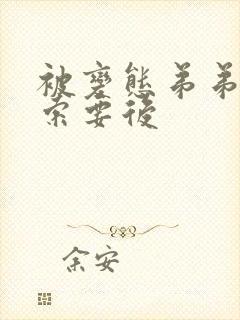 被变态弟弟
索要后
余安